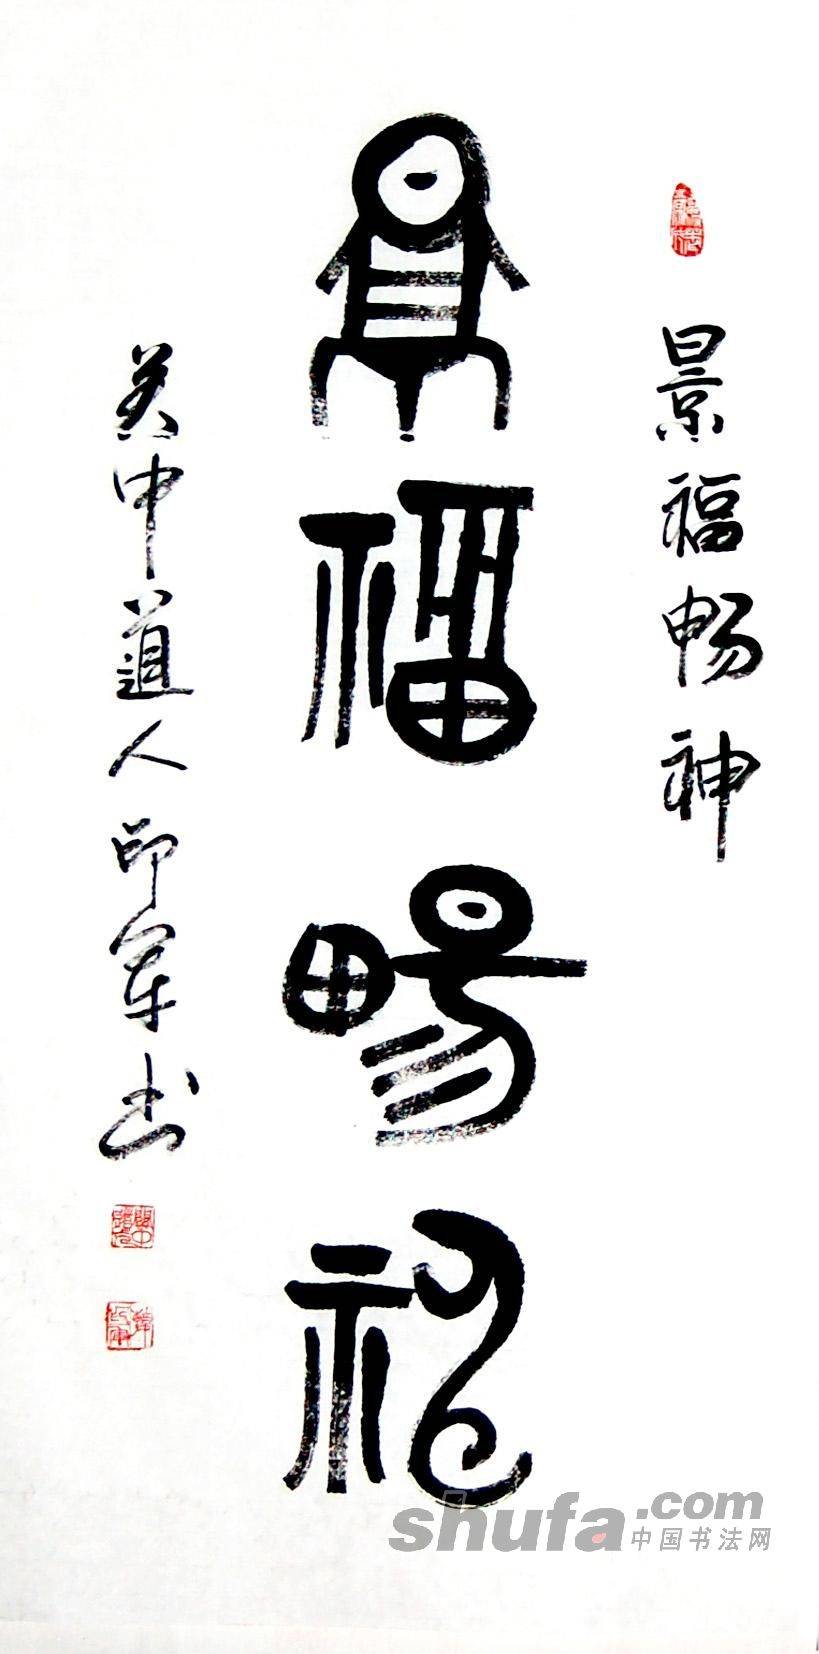 景福畅神
景福畅神
关中道人印军书
shufa.com
中国书法网